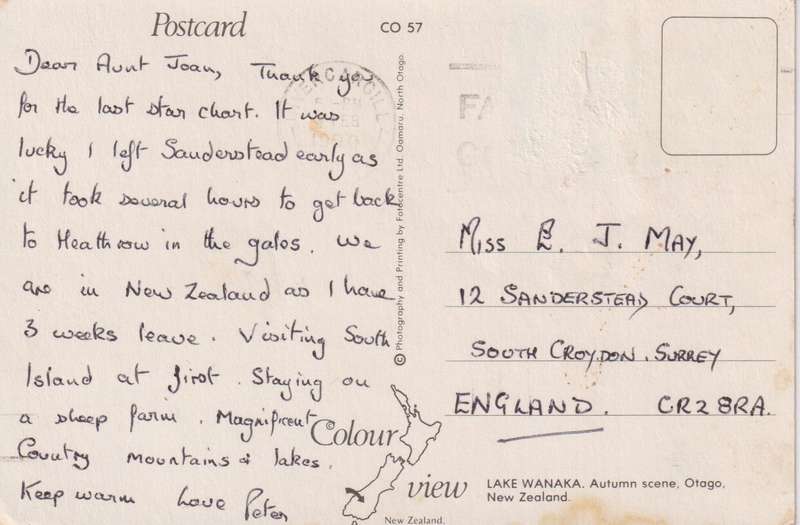 Postcard
CO 57
Dear Aunt Joan, Thank you
for the last star chart. It was
lucky I left Sanderstead early as
it took several hours to get back
to Heathrow in the gales. We
are in New Zealand as I have
3 weeks leave. Visiting South
Island at first. Staying on
a sheep farm. Magnificent
Country mountains & lakes.
Keep warm Love Peter
INVERCARGILL
FEB
© Photography and Printing by Fotocentre Ltd. Oamaru, North Otago.
MISS E. J. MAY,
12 SANDERSTEAD COURT,
SOUTH CROYDON. SURREY
ENGLAND. CR2 8RA.
Colour
view
New Zealand.
LAKE WANAKA. Autumn scene, Otago,
New Zealand.